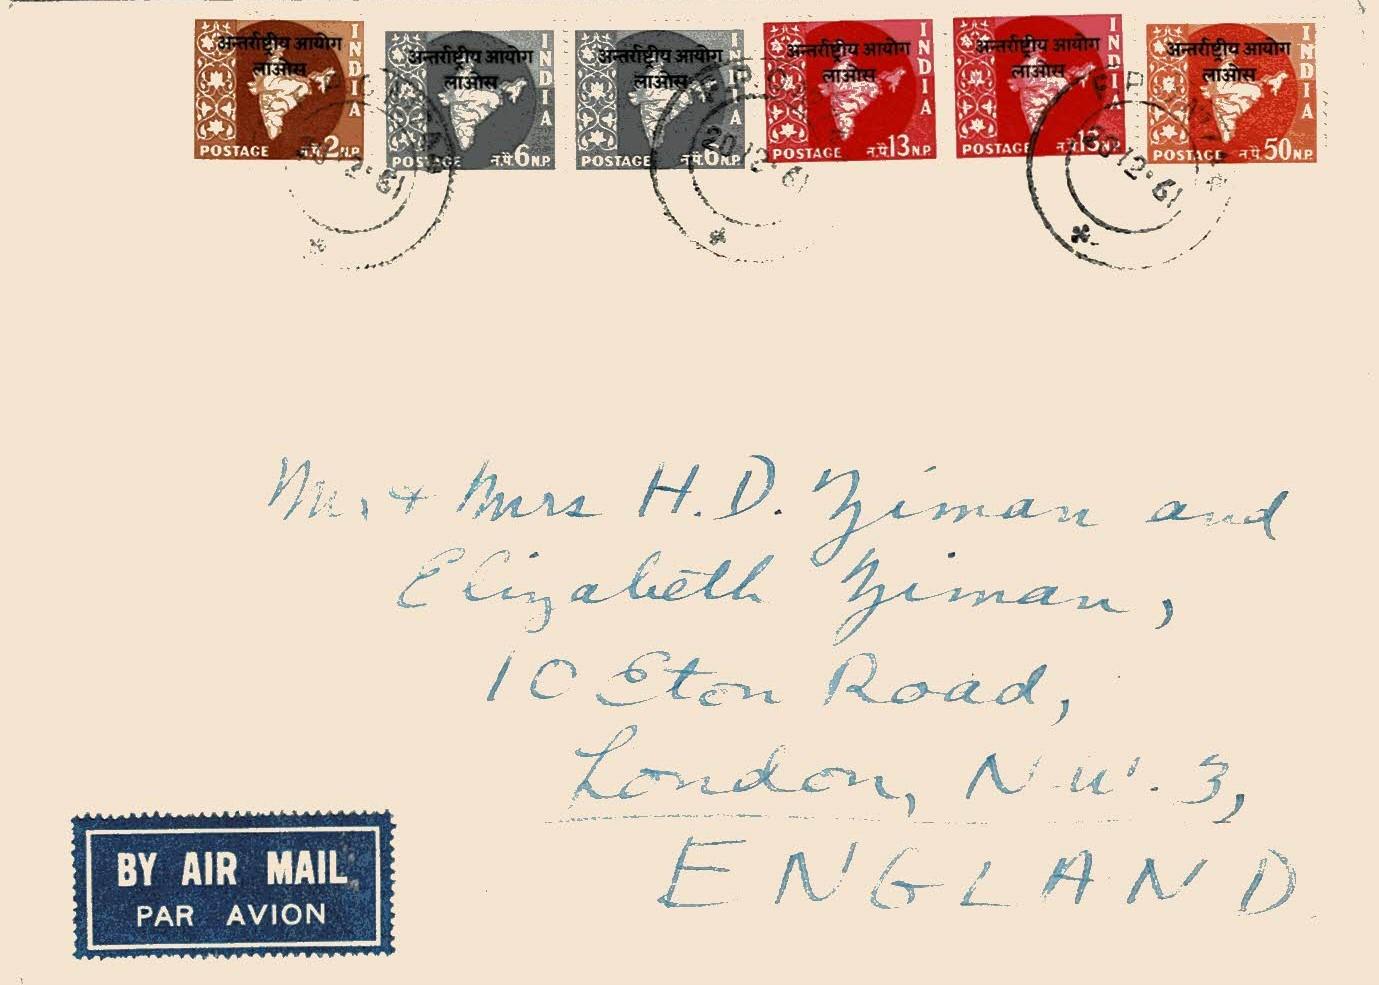 अन्तर्राष्ट्रीय आयोग
लाओस
INDIA
POSTAGE न.पै.2N.P.
अन्तर्राष्ट्रीय आयोग
लाओस
INDIA
POSTAGE न.पै.6N.P.
अन्तर्राष्ट्रीय आयोग
लाओस
INDIA
POSTAGE न.पै.6N.P.
अन्तर्राष्ट्रीय आयोग
लाओस
INDIA
POSTAGE न.पै.13N.P.
अन्तर्राष्ट्रीय आयोग
लाओस
INDIA
POSTAGE न.पै.13N.P.
अन्तर्राष्ट्रीय आयोग
लाओस
INDIA
POSTAGE न.पै.50N.P.
20.12.61
20.12.61
Mr. + Mrs H.D. Ziman and
Elizabeth Ziman,
10 Eton Road,
London, N.W.3,
ENGLAND
BY AIR MAIL
PAR AVION